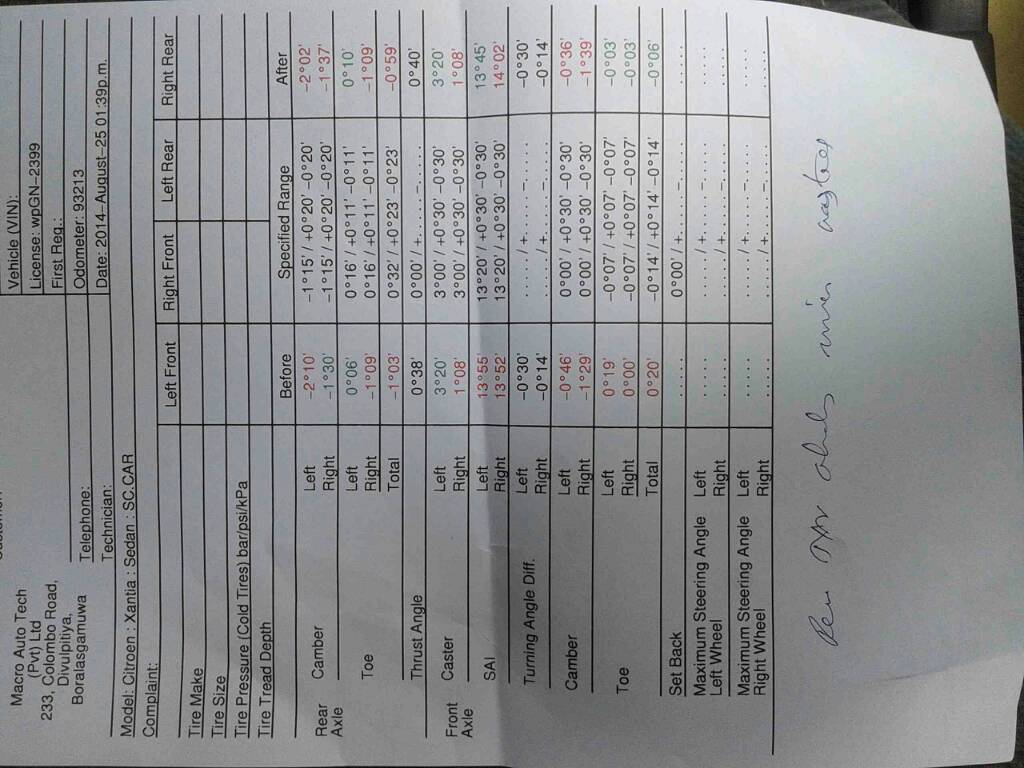 Macro Auto Tech
(Pvt) Ltd
233, Colombo Road,
Divulpitiya,
Boralasgamuwa
Vehicle (VIN):
License: wpGN-2399
First Reg.:
Odometer: 93213
Date: 2014-August-25 01:39p.m.
Telephone:
Technician:
Model: Citroen : Xantia : Sedan : SC.CAR
Complaint:
Left Front Right Front Left Rear Right Rear
Tire Make
Tire Size
Tire Pressure (Cold Tires) bar/psi/kPa
Tire Tread Depth
Before Specified Range After
Rear Axle Camber Left -2°10' -1°15' / +0°20' -0°20' -2°02'
Right -1°30' -1°15' / +0°20' -0°20' -1°37'
Toe Left 0°06' 0°16' / +0°11' -0°11' 0°10'
Right -1°09' 0°16' / +0°11' -0°11' -1°09'
Total -1°03' 0°32' / +0°23' -0°23' -0°59'
Thrust Angle 0°38' 0°00' / +..... -..... 0°40'
Front Axle Caster Left 3°20' 3°00' / +0°30' -0°30' 3°20'
Right 1°08' 3°00' / +0°30' -0°30' 1°08'
SAI Left 13°55' 13°20' / +0°30' -0°30' 13°45'
Right 13°52' 13°20' / +0°30' -0°30' 14°02'
Turning Angle Diff. Left -0°30' ..... / +..... -..... -0°30'
Right -0°14' ..... / +..... -..... -0°14'
Camber Left -0°46' 0°00' / +0°30' -0°30' -0°36'
Right -1°29' 0°00' / +0°30' -0°30' -1°39'
Toe Left 0°19' -0°07' / +0°07' -0°07' -0°03'
Right 0°00' -0°07' / +0°07' -0°07' -0°03'
Total 0°20' -0°14' / +0°14' -0°14' -0°06'
Set Back ..... 0°00' / +..... -..... .....
Maximum Steering Angle Left ..... ..... / +..... -..... .....
Left Wheel Right ..... ..... / +..... -..... .....
Maximum Steering Angle Left ..... ..... / +..... -..... .....
Right Wheel Right ..... ..... / +..... -..... .....